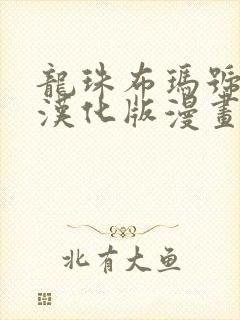 龍珠布瑪號
漢化版漫畫
北有大鱼